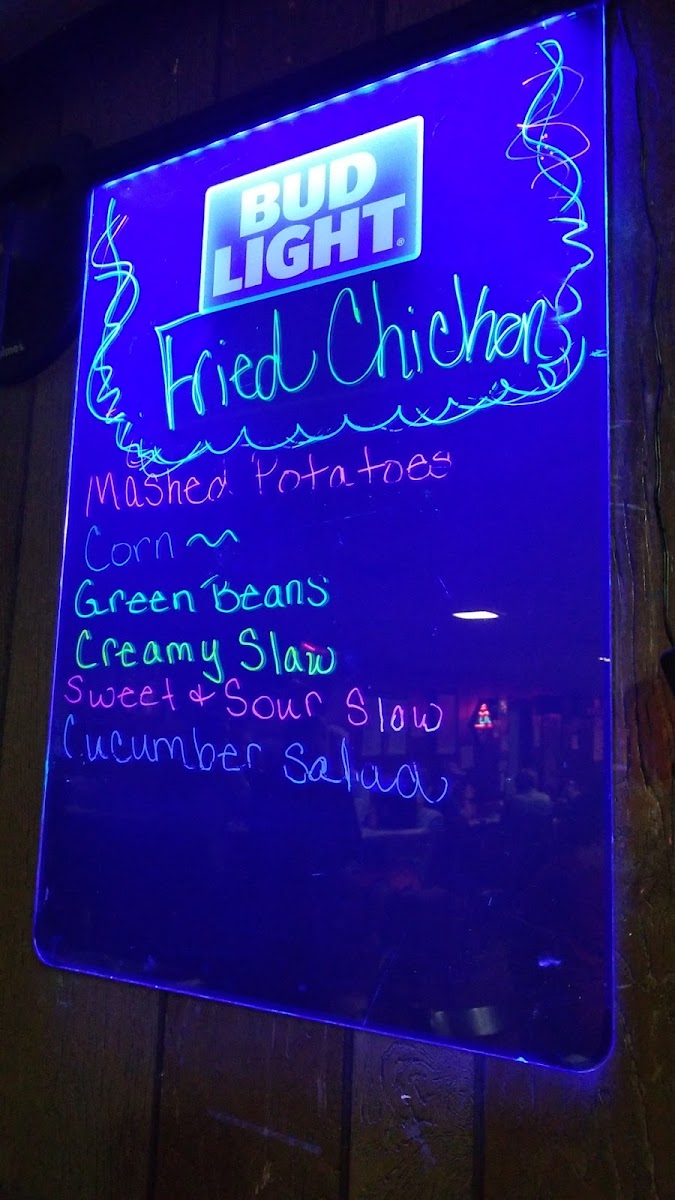 BUD
LIGHT
Fried Chicken
Mashed Potatoes
Corn ~
Green Beans
Creamy Slaw
Sweet & Sour Slow
Cucumber Salad